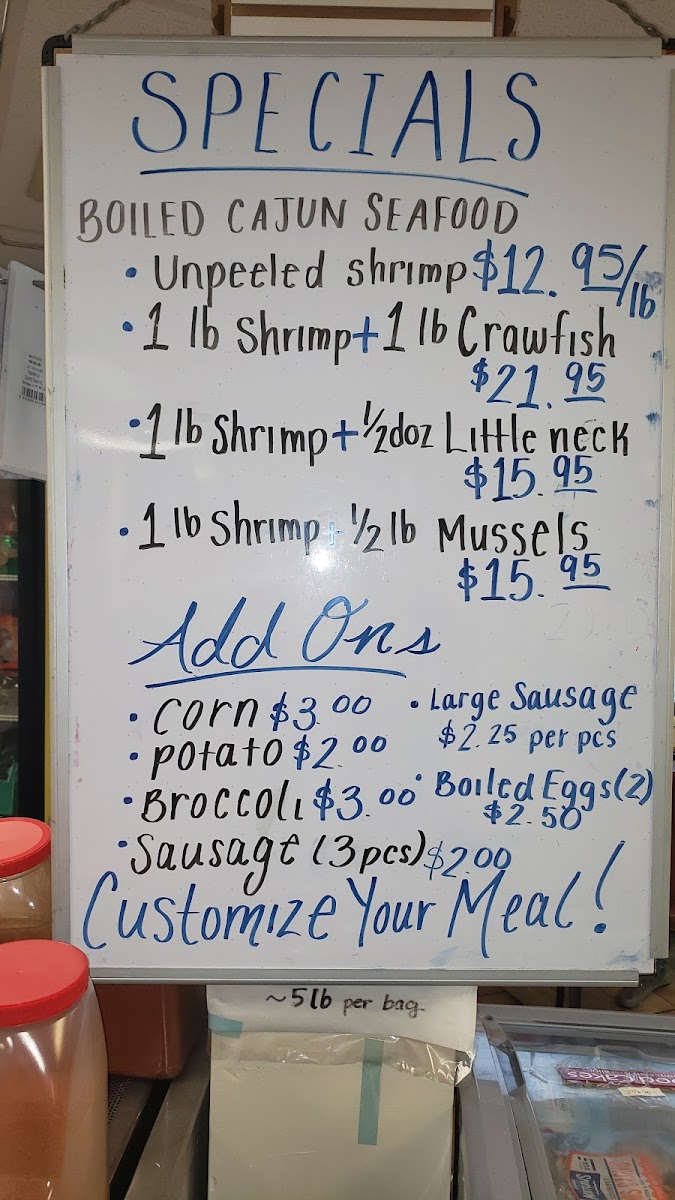 SPECIALS
BOILED CAJUN SEAFOOD
• Unpeeled shrimp $12.95/lb
• 1 lb Shrimp + 1 lb Crawfish
$21.95
• 1 lb Shrimp + 1/2 doz Little neck
$15.95
• 1 lb Shrimp + 1/2 lb Mussels
$15.95
Add Ons
• Corn $3.00
• Potato $2.00
• Broccoli $3.00
• Sausage (3pcs) $2.00
• Large Sausage
$2.25 per pcs
• Boiled Eggs (2)
$2.50
Customize Your Meal!
~5lb per bag